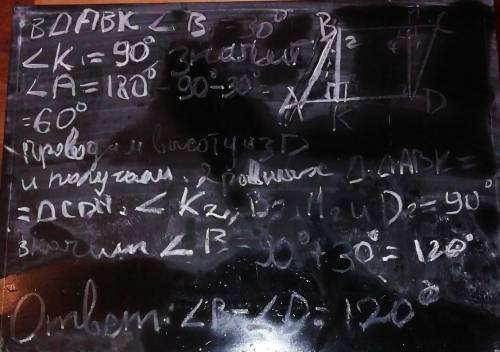 В ΔABK ∠B₁ = 30°
∠K₁ = 90°, значит
∠A = 180° - 90° - 30° =
= 60°
B C
2
A K D
Проводим высоту из D
и получаем 2 равных Δ. ΔABK =
= ΔCDH. ∠K₂, B₂, H₂ и D₂ = 90°
значит ∠B = 90° + 30° = 120°
Ответ: ∠B = ∠D = 120°